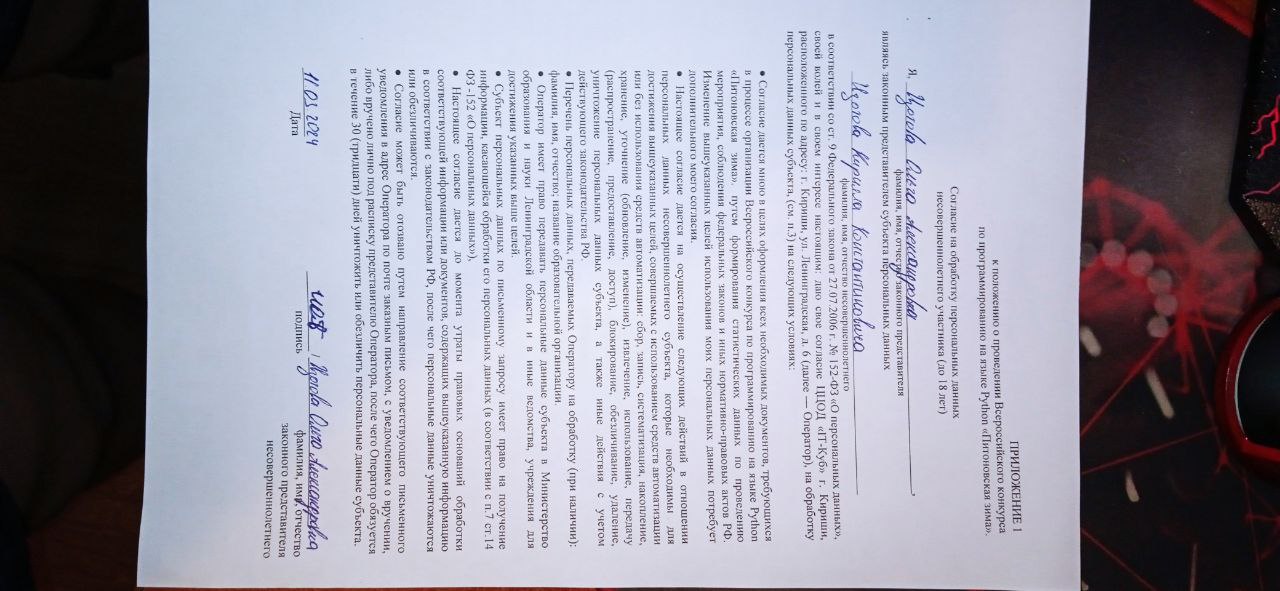 ПРИЛОЖЕНИЕ 1
к положению о проведении Всероссийского конкурса
по программированию на языке Python «Питоновская зима».
Согласие на обработку персональных данных
несовершеннолетнего участника (до 18 лет)
Я, Изотова Ольга Александровна
фамилия, имя, отчество законного представителя
являясь законным представителем субъекта персональных данных
Изотова Кирилла Константиновича
фамилия, имя, отчество несовершеннолетнего
в соответствии со ст. 9 Федерального закона от 27.07.2006 г. № 152-ФЗ «О персональных данных»,
своей волей и в своем интересе настоящим: даю свое согласие ЦЦОД «IT-Куб» г. Кириши,
расположенного по адресу: г. Кириши, ул. Ленинградская, д. 6 (далее — Оператор), на обработку
персональных данных субъекта, (см. п.3) на следующих условиях:
• Согласие дается мною в целях оформления всех необходимых документов, требующихся
в процессе организации Всероссийского конкурса по программированию на языке Python
«Питоновская зима», путем формирования статистических данных по проведению
мероприятия, соблюдения федеральных законов и иных нормативно-правовых актов РФ.
Изменение вышеуказанных целей использования моих персональных данных потребует
дополнительного моего согласия.
• Настоящее согласие дается на осуществление следующих действий в отношении
персональных данных несовершеннолетнего субъекта, которые необходимы для
достижения вышеуказанных целей, совершаемых с использованием средств автоматизации
или без использования средств автоматизации: сбор, запись, систематизация, накопление,
хранение, уточнение (обновление, изменение), извлечение, использование, передачу
(распространение, предоставление, доступ), блокирование, обезличивание, удаление,
уничтожение персональных данных субъекта, а также иные действия с учетом
действующего законодательства РФ.
• Перечень персональных данных, передаваемых Оператору на обработку (при наличии):
фамилия, имя, отчество; название образовательной организации.
• Оператор имеет право передавать персональные данные субъекта в Министерство
образования и науки Ленинградской области и в иные ведомства, учреждения для
достижения указанных выше целей.
• Субъект персональных данных по письменному запросу имеет право на получение
информации, касающейся обработки его персональных данных (в соответствии с п.7 ст.14
ФЗ -152 «О персональных данных»).
• Настоящее согласие дается до момента утраты правовых оснований обработки
соответствующей информации или документов, содержащих вышеуказанную информацию
в соответствии с законодательством РФ, после чего персональные данные уничтожаются
или обезличиваются.
• Согласие может быть отозвано путем направление соответствующего письменного
уведомления в адрес Оператора по почте заказным письмом, с уведомлением о вручении,
либо вручено лично под расписку представителю Оператора, после чего Оператор обязуется
в течение 30 (тридцати) дней уничтожить или обезличить персональные данные субъекта.
11.03 2024 / Изотова Ольга Александровна
Дата подпись фамилия, имя, отчество
законного представителя
несовершеннолетнего